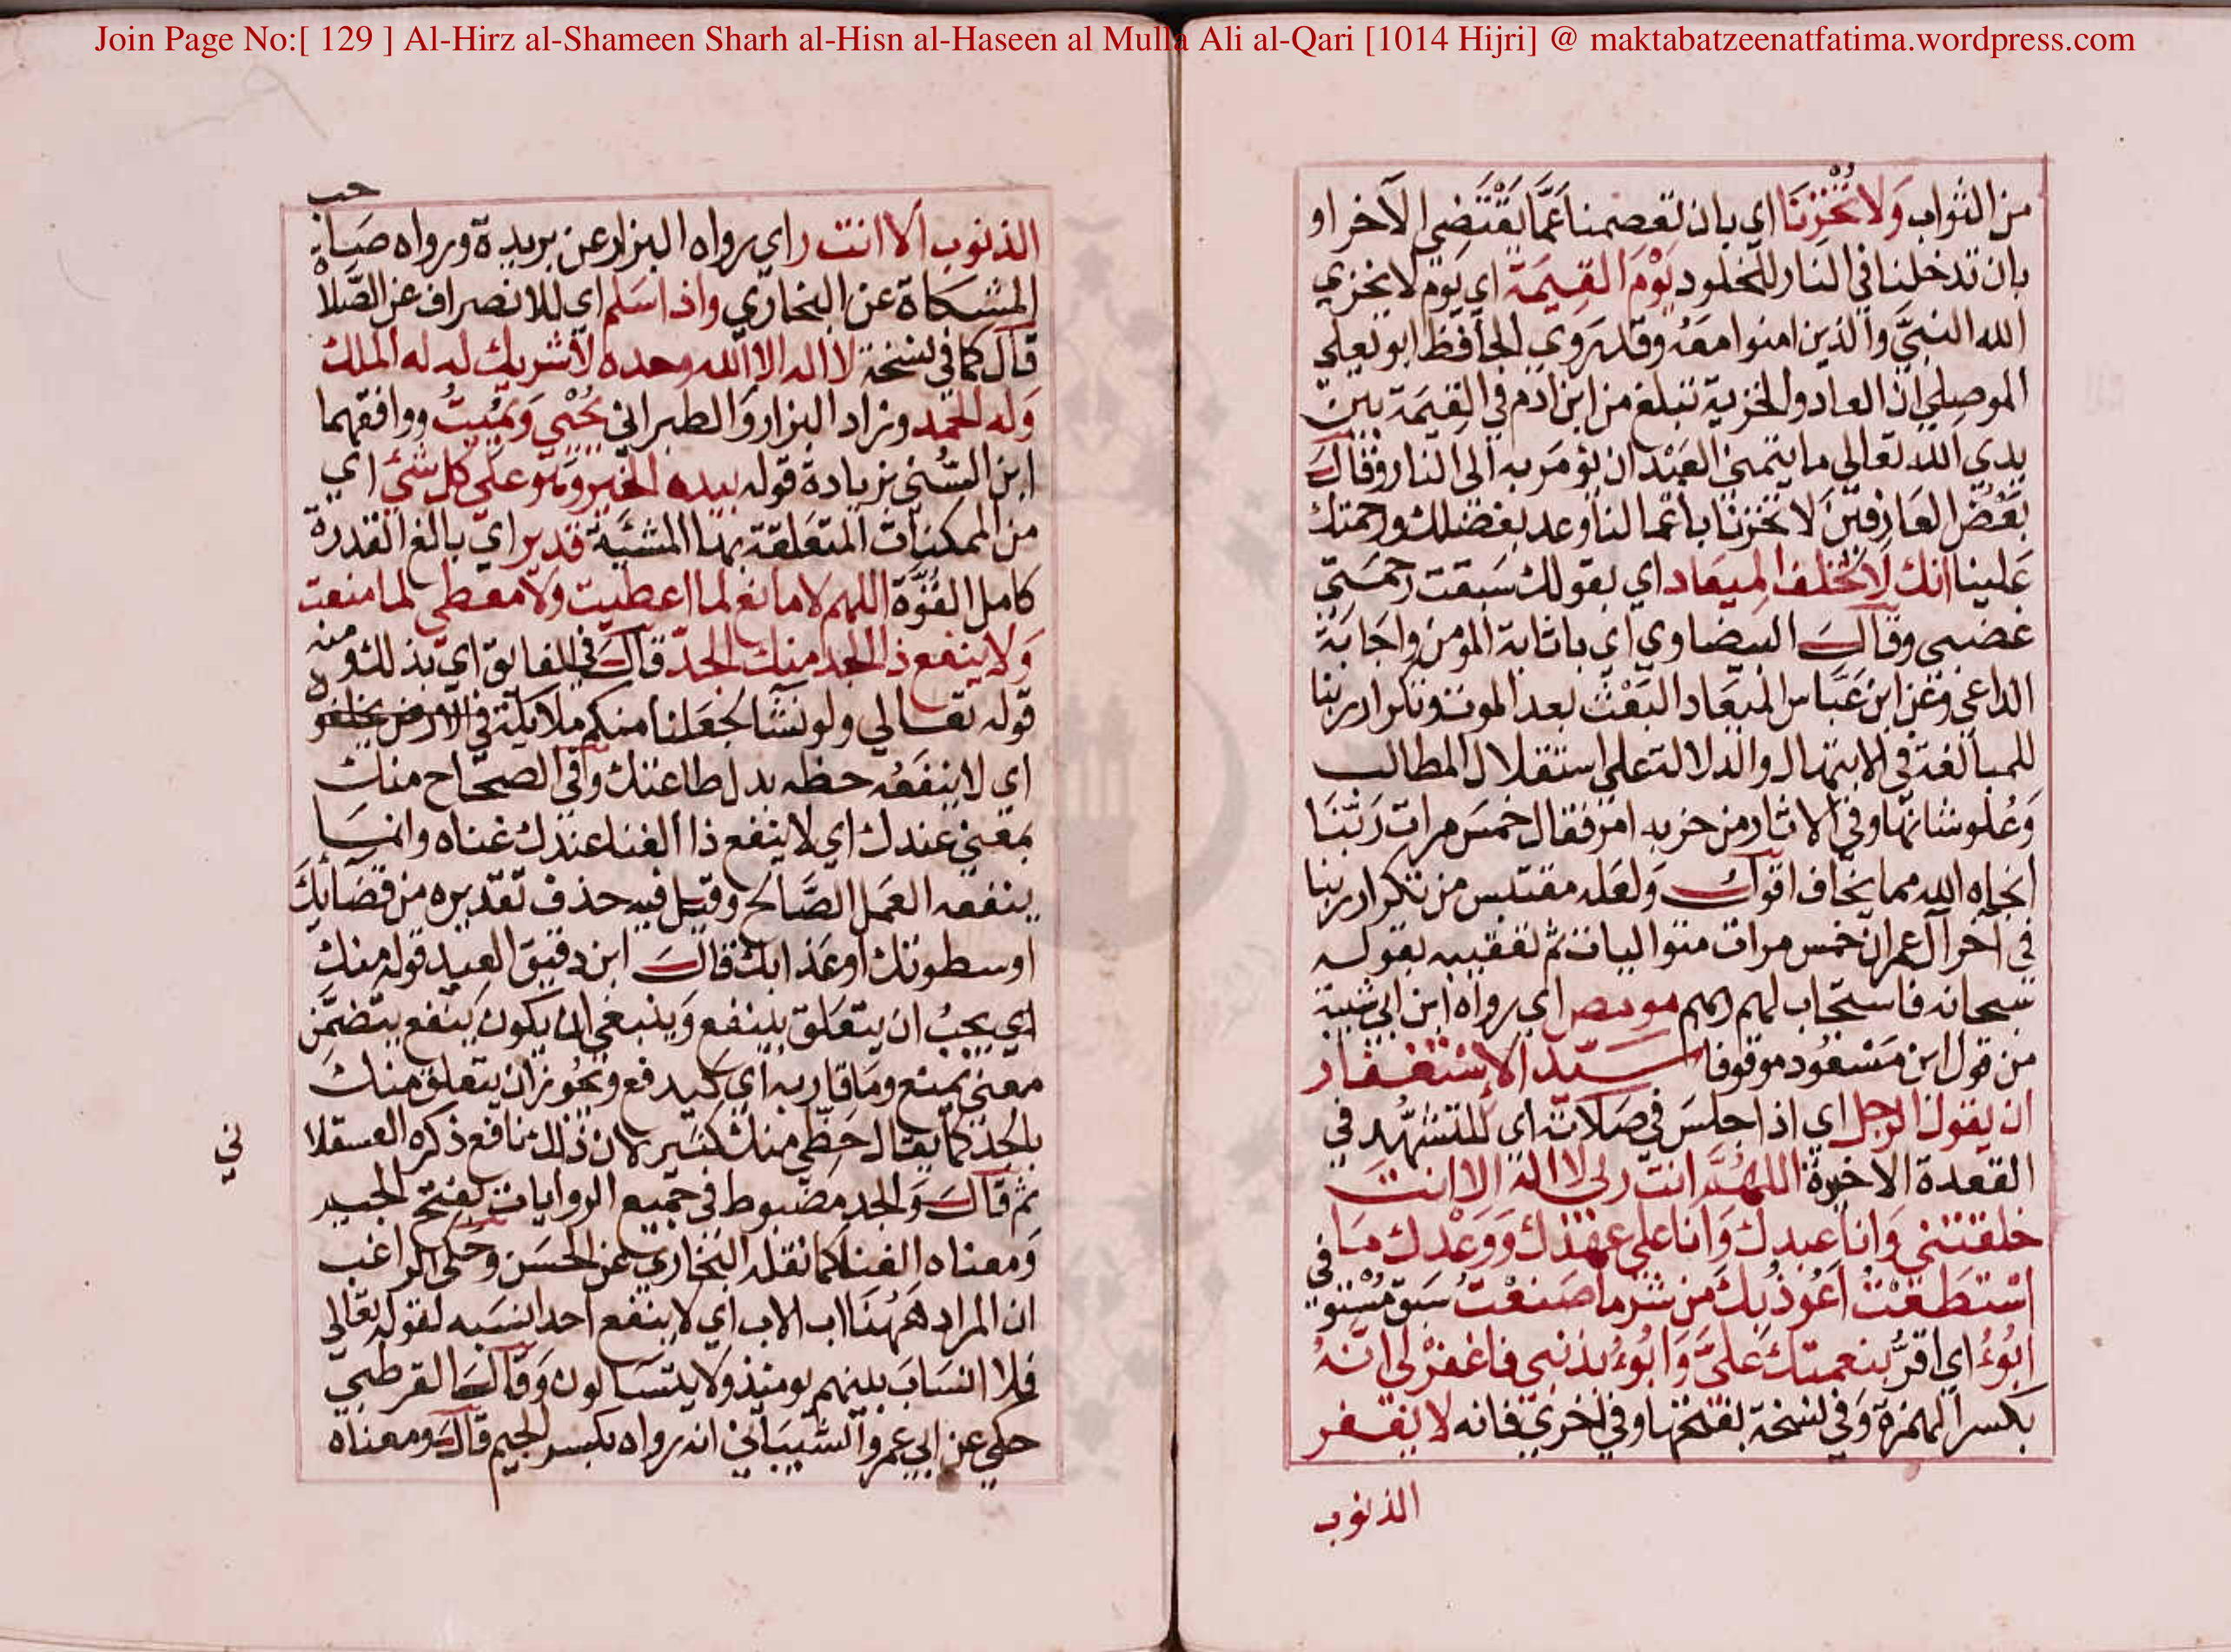 Join Page No:[ 129 ] Al-Hirz al-Shameen Sharh al-Hisn al-Haseen al Mulla Ali al-Qari [1014 Hijri] @ maktabatzeenatfatima.wordpress.com
من الثواب وَلا تُخْزِنَا اي بان تعصمنا عَمَّا يَقْتَضِي الآخر او
بان تدخلنا في النار للخلود يَوْمَ القِيٰمَة اي يَوْم لا يخزي
الله النبيَّ والذين امنوا معَهُ وقد روي الحافظ ابو يعلي
الموصلي ان العار والخزية تبلغ من ابن ادم في القيمَة بين
يدي الله تعالي ما يتمني العَبْد ان يؤمَر به الي النار وقالَ
بَعْضُ العَارفينَ لا تخزنا باعمالنا وعد بفضلك ورحمتك
عَلينا انك لَا تُخْلف المِيعَاد اي بقولك سَبقت رحمَتي
غضبي وقال البيضاوي اي باثابة المومن واجَابَة
الداعي وَعَن ابن عَبَّاس الميعَاد البَعْث بعد الموت وتكرار ربنا
للمبالغة في الابتهال والدلالة علي استقلال المطالب
وَعُلو شانها وفي الاثار من حزبه امر فقال خمسَ مرات رَبَّنَا
انجاه الله مما يخاف اقول وَلعَله مقتبس من تكرار ربنا
في آخر آل عمران خمس مرات متواليات ثم تعقيبه بقوله
سبحانه فاستجاب لهم ربهم مو مص اي رواه ابن ابي شيبة
من قول ابن مَسْعُود موقوفا سَيّد الاِسْتغفار
ان يقول الرجل اي اذا جلسَ في صَلاته اي للتشهّد في
القعدة الاخيرة اللهُمَّ انت ربي لا اله الا انت
خلقتني وَانا عبدك وَانا علي عهْدك وَوَعْدك مَا
اسْتَطَعْتُ اَعُوذ بِكَ مَن شر ما صَنعْتُ سَبق مُسْتوفي
اَبُوءُ اي اقرُّ بنعمتك عَلَيَّ وَاَبُوءُ بذنبي فاغفرْ لي انّهُ
بكسر الهمزة وَفي نسخة بفتحها وفي اخري فانه لا يغفر
الذنوب
حب
الذنوب الا انت ر اي رواه البزار عن بريدة ورواه صَاحب
المشكاة عن البخاري واذا سَلم اي للانصراف عن الصَّلاة
قال كما في نسخة لا اله الا الله وحده لا شريك له له الملك
وَله الحمد وزاد البزار وَالطبراني يُحْيي وَيمُيتُ ووافقهما
ابن السُّني بزيادة قوله بيده الخير وَهو علي كل شئ اي
من الممكنات المتعَلقة بها المشيَّة قدير اي بالغ القدرة
كامل القُوَّة اللهم لا مانع لما اعطيت وَلا معطي لما منعت
وَلا ينفع ذا الجد منك الجدّ قالَ في الفايق اي بذلك ومنه
قوله تعالي ولو نشَا لجعَلنا منكم ملايكة في الارض يخلفون
اي لا ينفعُه حظه بدل طاعتك وَفي الصحَاح منك
بمعني عندك اي لا ينفع ذا الغنا عندك غناه وانما
ينفعه العَمل الصَّالح وقيل فيه حذف تقديره من قضَائك
او سطوتك اوعَذابك قال ابن دقيق العِيد قوله منك
اي يجبُ ان يتعَلق بينفع وَينبغي ان يكون يَنفع يتضمَّن
معني يمنع ومَا قاربه اي كيدفع وَيجُوز ان يتعلق منك
بالجد كما يقال حظِّي منك كثير لان ذلك نافع ذكره العسقلا
ني
ثم قالَ وَالجد مضبوط في جميع الروايات بفتح الجيم
وَمعناه الغنا كما نقله البخاري عن الحسَن وَحكي الراغب
ان المراد هَهُنَا اب الاب اي لا ينفع احدا نسَبه لقوله تعَالي
فلا انسَابَ بينهم يومئذ ولا يتسَالون وَقالَ القرطبي
حكي عن ابي عمرو الشيبَاني انه رواه بكسر الجيم قالَ ومعناه